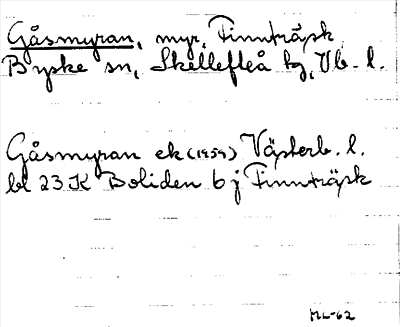 Gåsmyran, myr, Finnträsk
Byske sn, Skellefteå tg, Vb. l.
Gåsmyran ek (1959) Västerb. l.
bl 23 K Boliden 6 j Finnträsk
ML-62